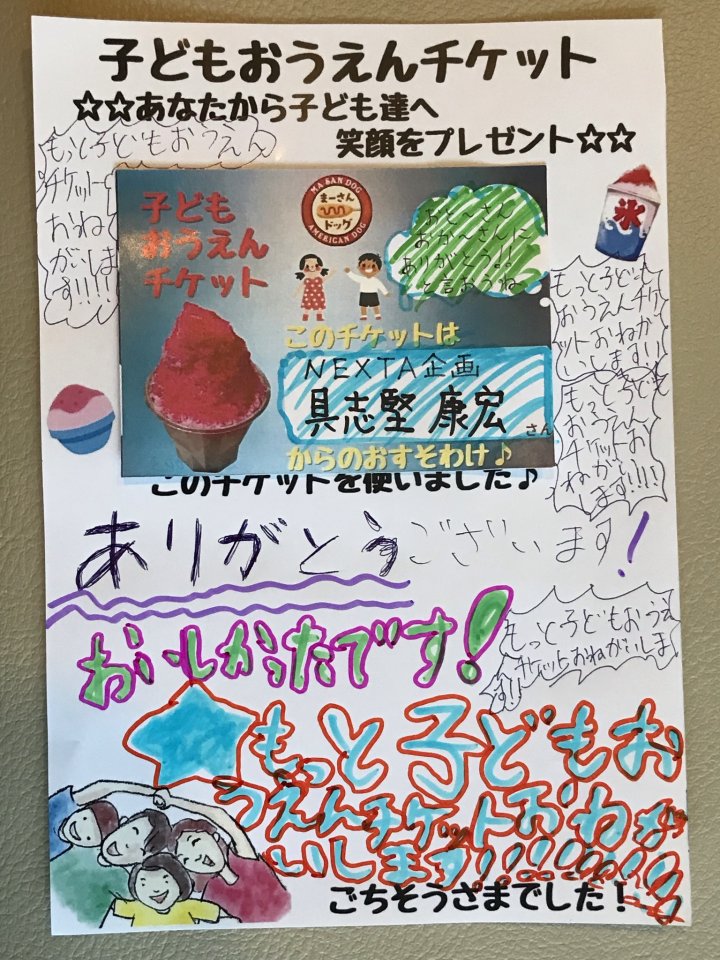 子どもおうえんチケット
☆☆あなたから子ども達へ
笑顔をプレゼント☆☆
もっと子どもおうえん
チケット
おねが
がいしま
す!!!!
子ども
おうえん
チケット
MA SAN DOG
まーさん
ドッグ
AMERICAN DOG
おと～さん
おか～さんに
ありがとう!!
と言おうね
氷
このチケットは
NEXTA企画
具志堅 康宏
さん
からのおすそわけ♪
もっと子ども
おうえんチケ
ットおねが
いします!!
もっと子ども
おうえん
チケットお
ねがい
します!!!!
このチケットを使いました♪
ありがとうございます!
おいしかったです!
もっと子どもおうえ
チケットおねがいしま
す!!
もっと子どもお
うえんチケットおねが
いします!!!!!!!!!
ごちそうさまでした!